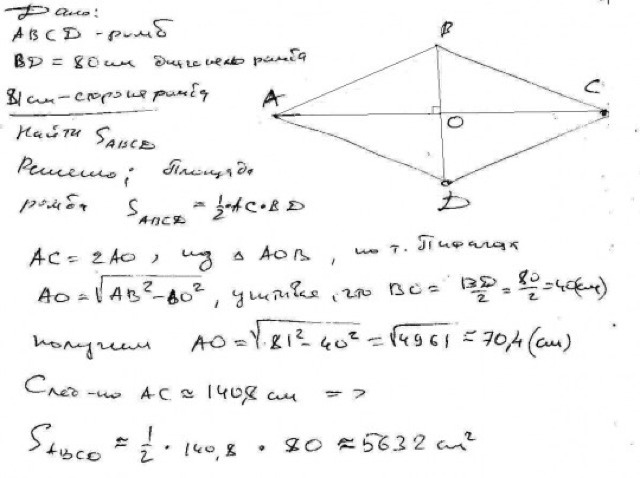 Дано:
ABCD - ромб
BD = 80 см диагональ ромба
81 см - сторона ромба
Найти S ABCD
B
A
C
O
D
Решение: Площадь
ромба S ABCD = 1/2 · AC · BD
AC = 2AO, из △ AOB, по т. Пифагора
AO = √(AB² - BO²), учитывая, что BO = BD/2 = 80/2 = 40 (см)
получим AO = √(81² - 40²) = √4961 ≈ 70,4 (см)
След-но AC ≈ 140,8 см =>
S ABCD ≈ 1/2 · 140,8 · 80 ≈ 5632 см²